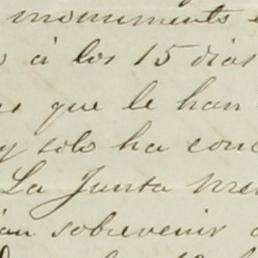 monumentos
á los 15 dias
que le han
y solo ha conc
La Junta
sobrevenir